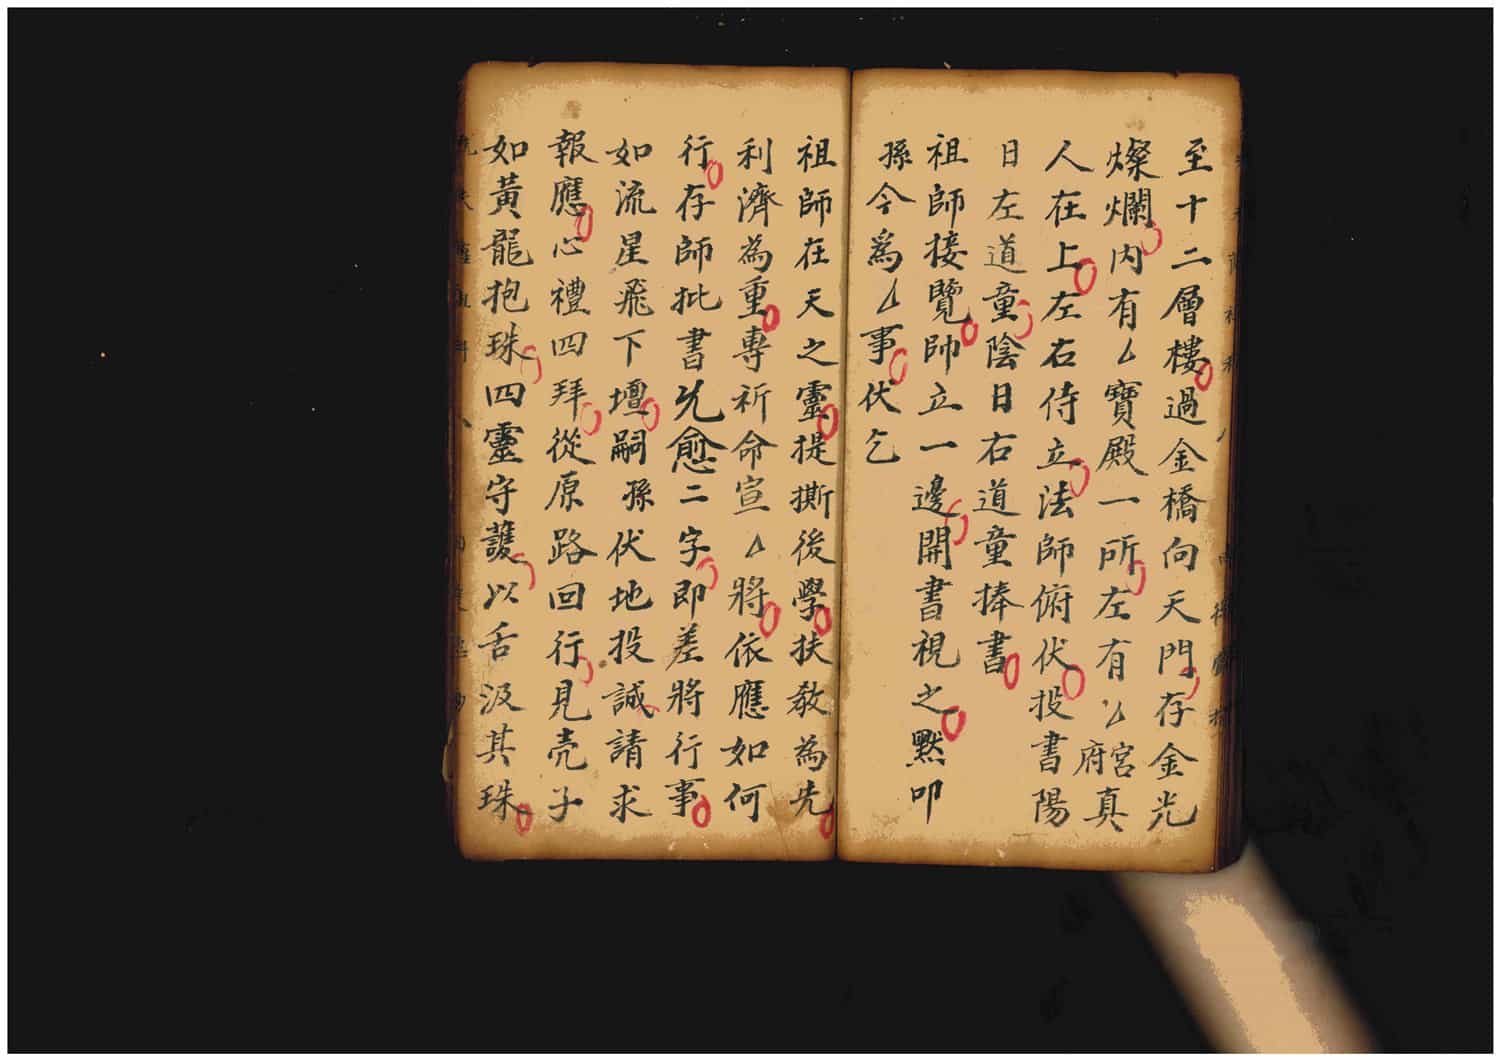 至十二層樓過金橋向天門存金光
燦爛内有厶寶殿一所左有厶宮府真
人在上左右侍立法師俯伏投書陽
日左道童陰日右道童捧書
祖師接覽帥立一邊開書視之黙叩
孫今為厶事伏乞
祖師在天之靈提撕後學扶教為先
利濟為重專祈命宣厶將依應如何
行存師批書允愈二字即差將行事
如流星飛下壇嗣孫伏地投誠請求
報應心禮四拜從原路回行見壳子
如黃龍抱珠四靈守護以舌汲其珠